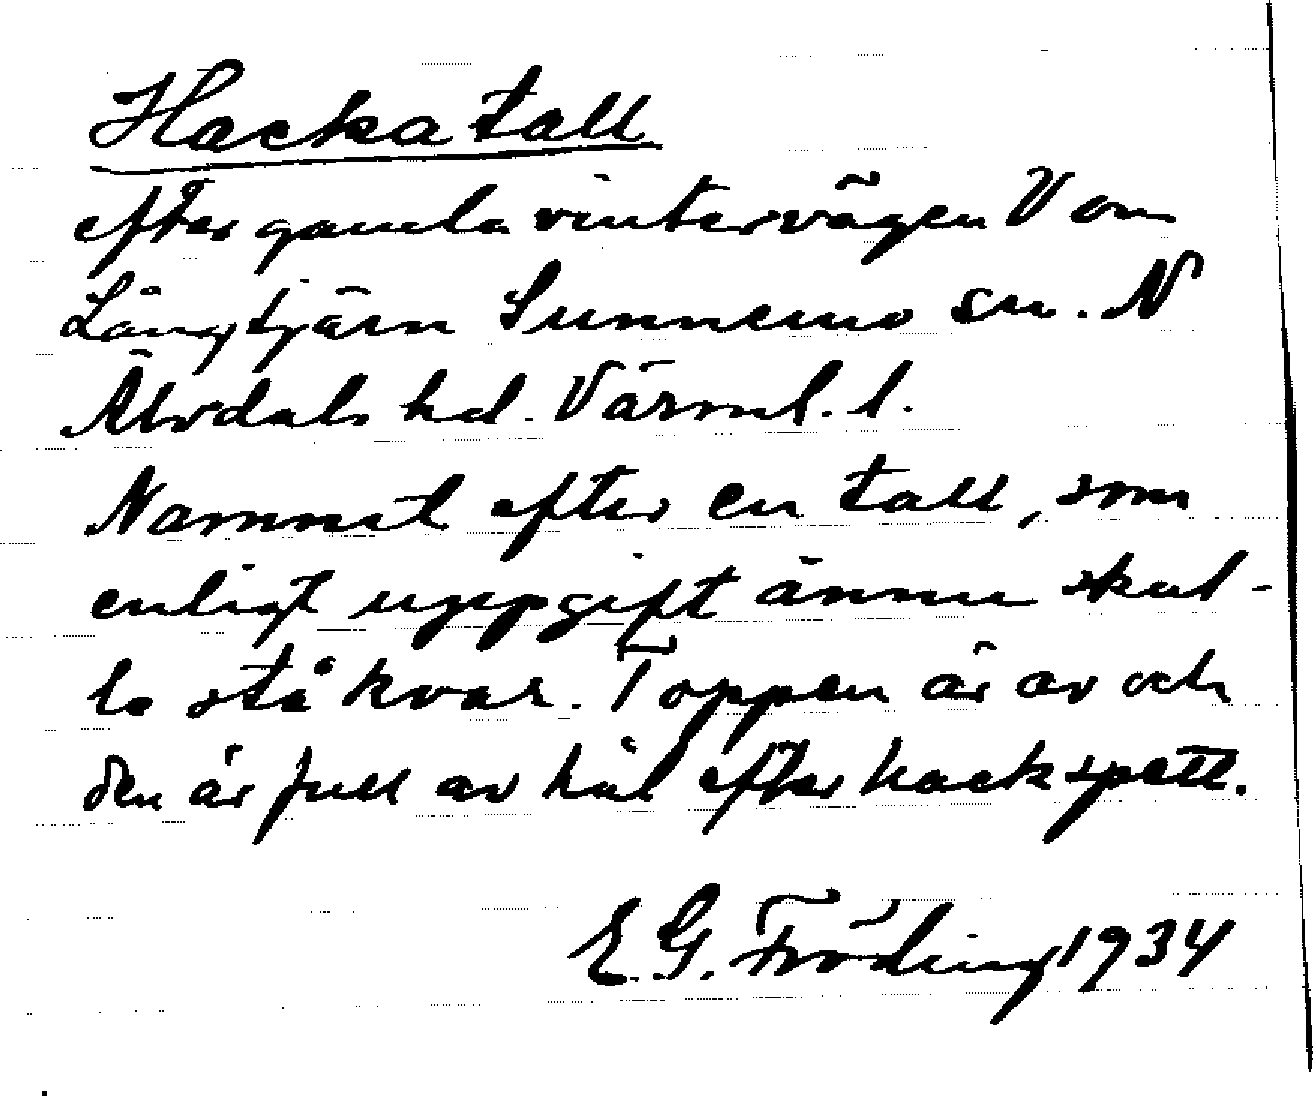 Hackatall
efter gamla vintervägen V om
Långtjärn Sunnemo sn. N
Älvdals hd. Värml. l.
Namnet efter en tall, som
enligt uppgift ännu skul-
le stå kvar. Toppen är av och
den är full av hål efter hackspett.
E. G. Fröding 1934